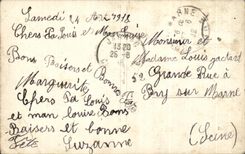 Samedi 24 Août 1918
Chers Pa Louis et Man Louise
Bons Baisers et Bonne
Fête
Marguerite
Chers Pa Louis
et man Louise Bons
Baisers et bonne
Fête Suzanne
Monsieur et
Madame Louis
52 Grande Rue à
Bry sur Marne
(Seine)